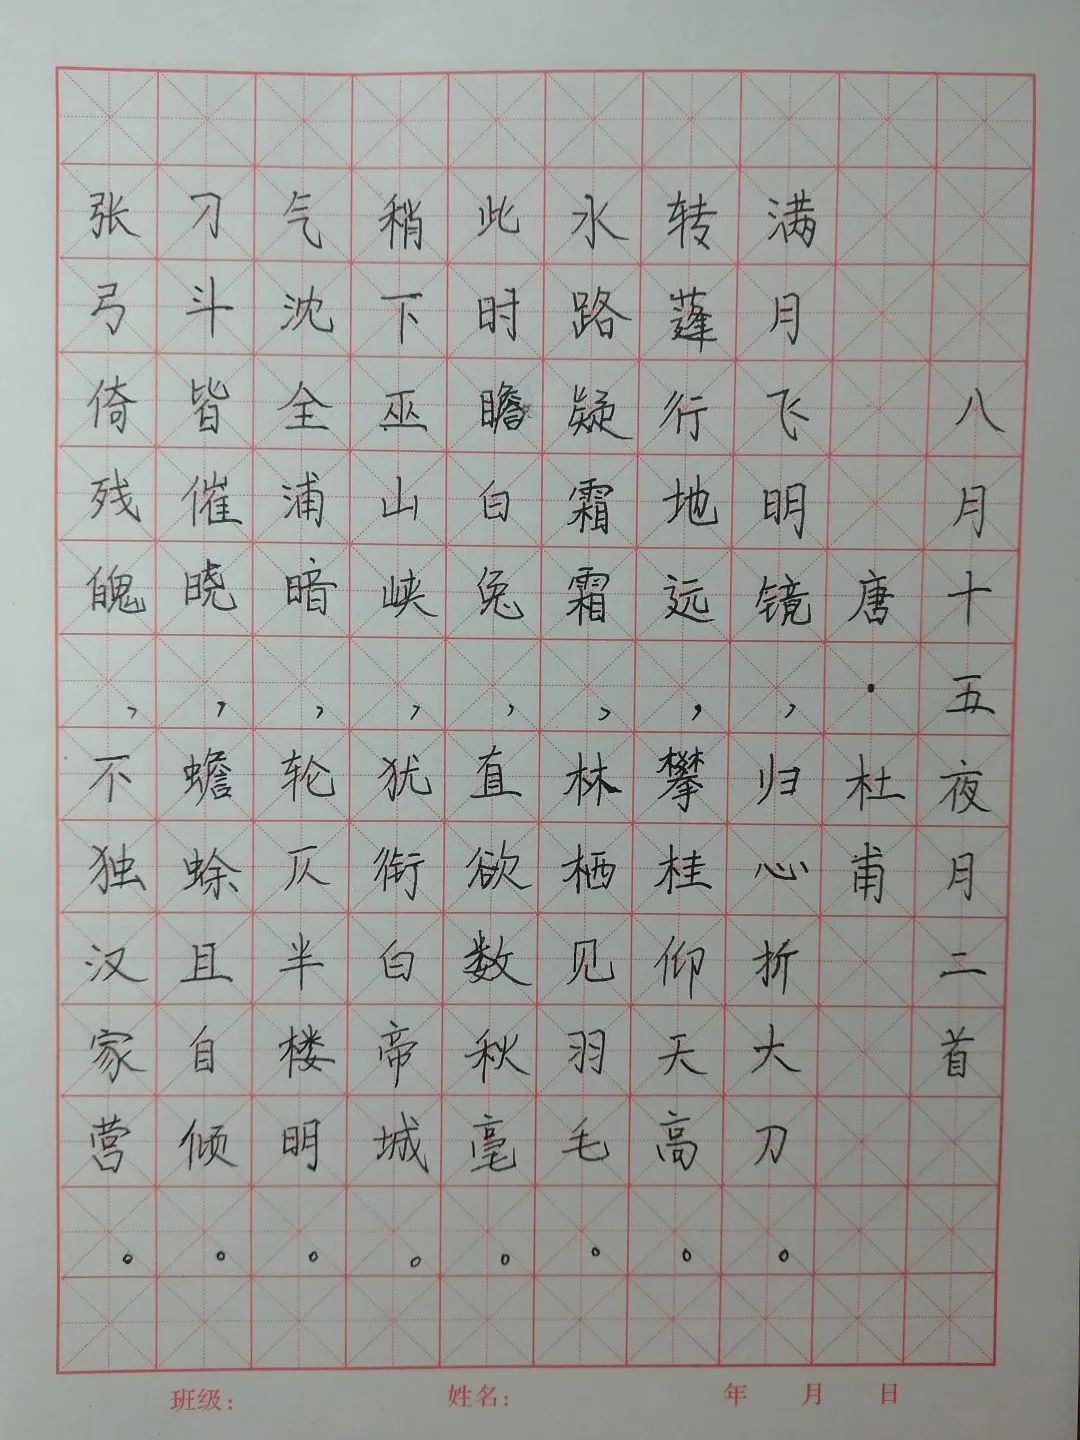 八月十五夜月二首
唐·杜甫
满月飞明镜，归心折大刀。
转蓬行地远，攀桂仰天高。
水路疑霜霜，林栖见羽毛。
此时瞻白兔，直欲数秋毫。
稍下巫山峡，犹衔白帝城。
气沈全浦暗，轮仄半楼明。
刁斗皆催晓，蟾蜍且自倾。
张弓倚残魄，不独汉家营。
班级： 姓名： 年 月 日